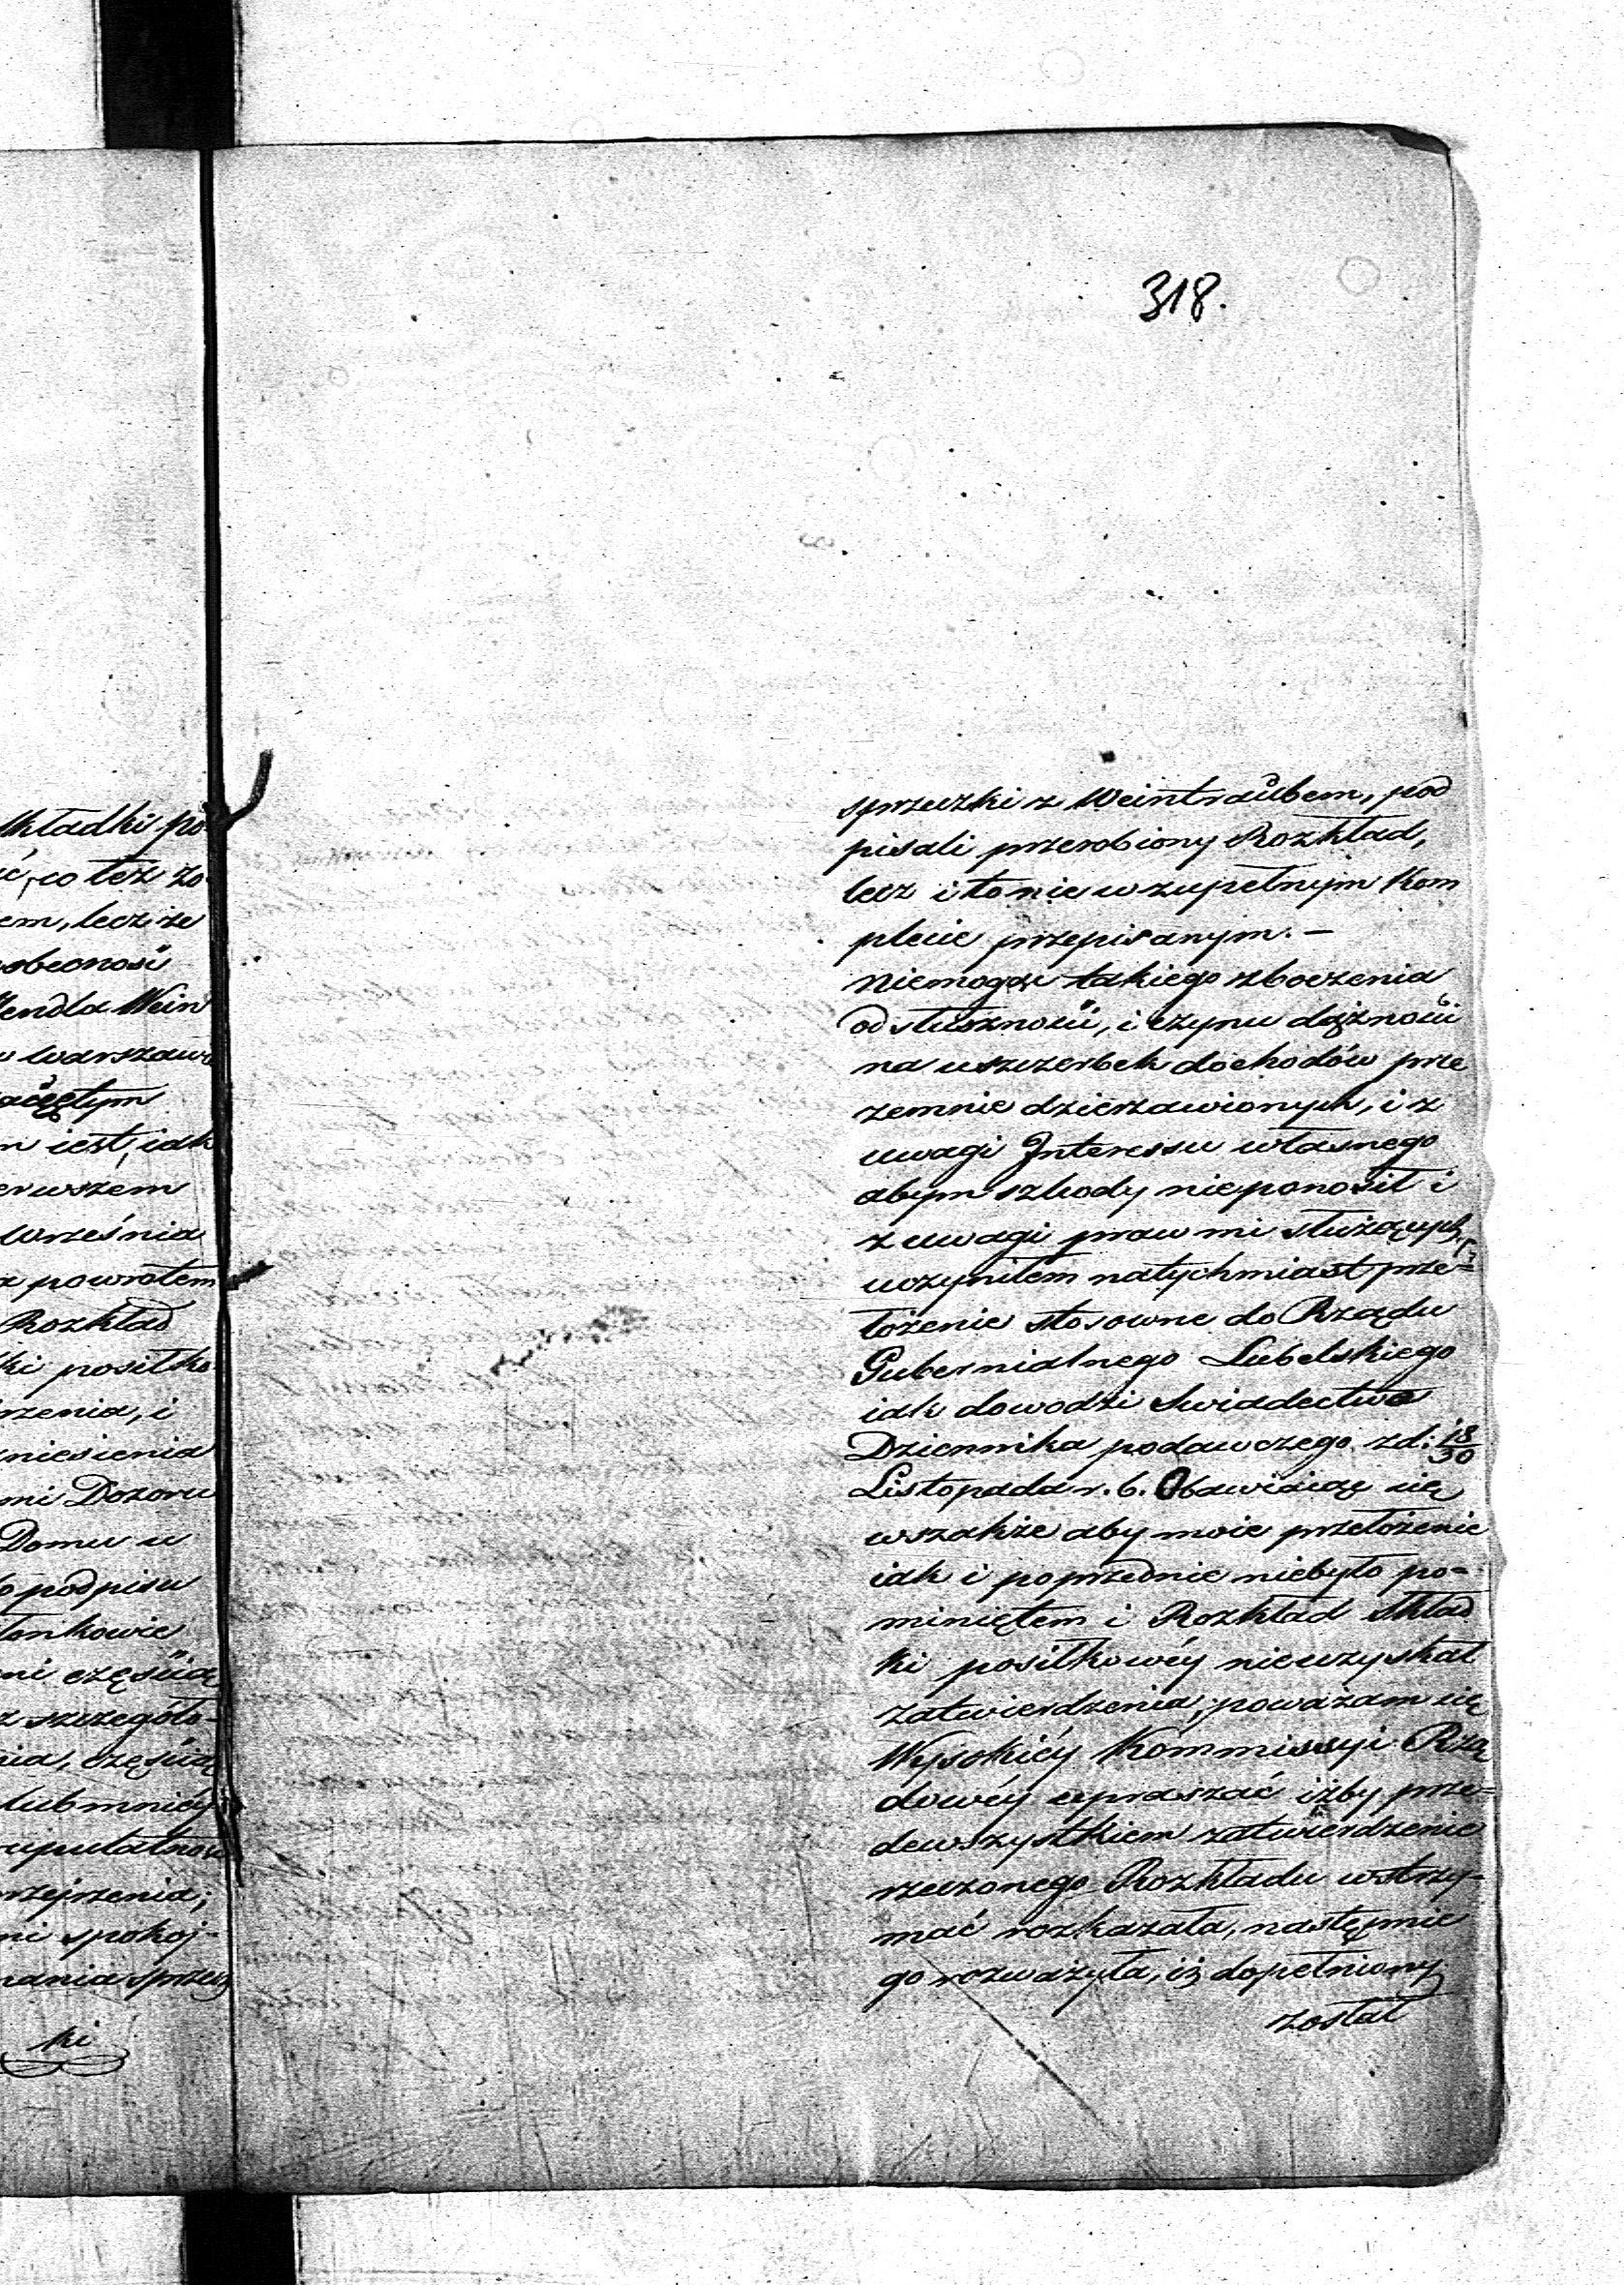 318.
kładki po
ć, co też zo
em, lecz że
obecności
endla Wein
Warszaw
aćętym
m iest, iak
erwszem
Września
a powrotem
Rozkład
ki posiłko
rzenia, i
niesienia
mi Dozoru
Domu u
o podpisu
łonkowie
ni częścią
z szczegóło-
nia, częścią
lub mniéj
rzejrzenia;
ni spokoj-
nania sprzecz
ki
sprzeczki z Weintraubem, pod
pisali przerobiony Rozkład,
lecz i to nie w zupełnym Kom
plecie przepisanym. –
Niemogąc takiego zboczenia
od słuszności, i czynu dążności
na uszczerbek dochodów prze
zemnie dzierzawionych, i z
uwagi Interessu własnego
abym szkody nieponosił i
z uwagi praw mi służących,
uczyniłem natychmiast prze=
łożenie stosowne do Rządu
Gubernialnego Lubelskiego
iak dowodzi Swiadectwo
Dziennika podawczego zd: 18/30
Listopada r. b. Obawiaiąc się
wszakże aby moie przełożenie
iak i poprzednie niebyło po=
miniętem i Rozkład Skład
ki posiłkowéy nieuzyskał
zatwierdzenia, poważam się
Wysokiéy Kommissyi Rzą
dowéy upraszać iżby prze=
dewszystkiem zatwierdzenie
rzeczonego Rozkładu wstrzy-
mać rozkazała, następnie
go rozważyła, iż dopełniony
został